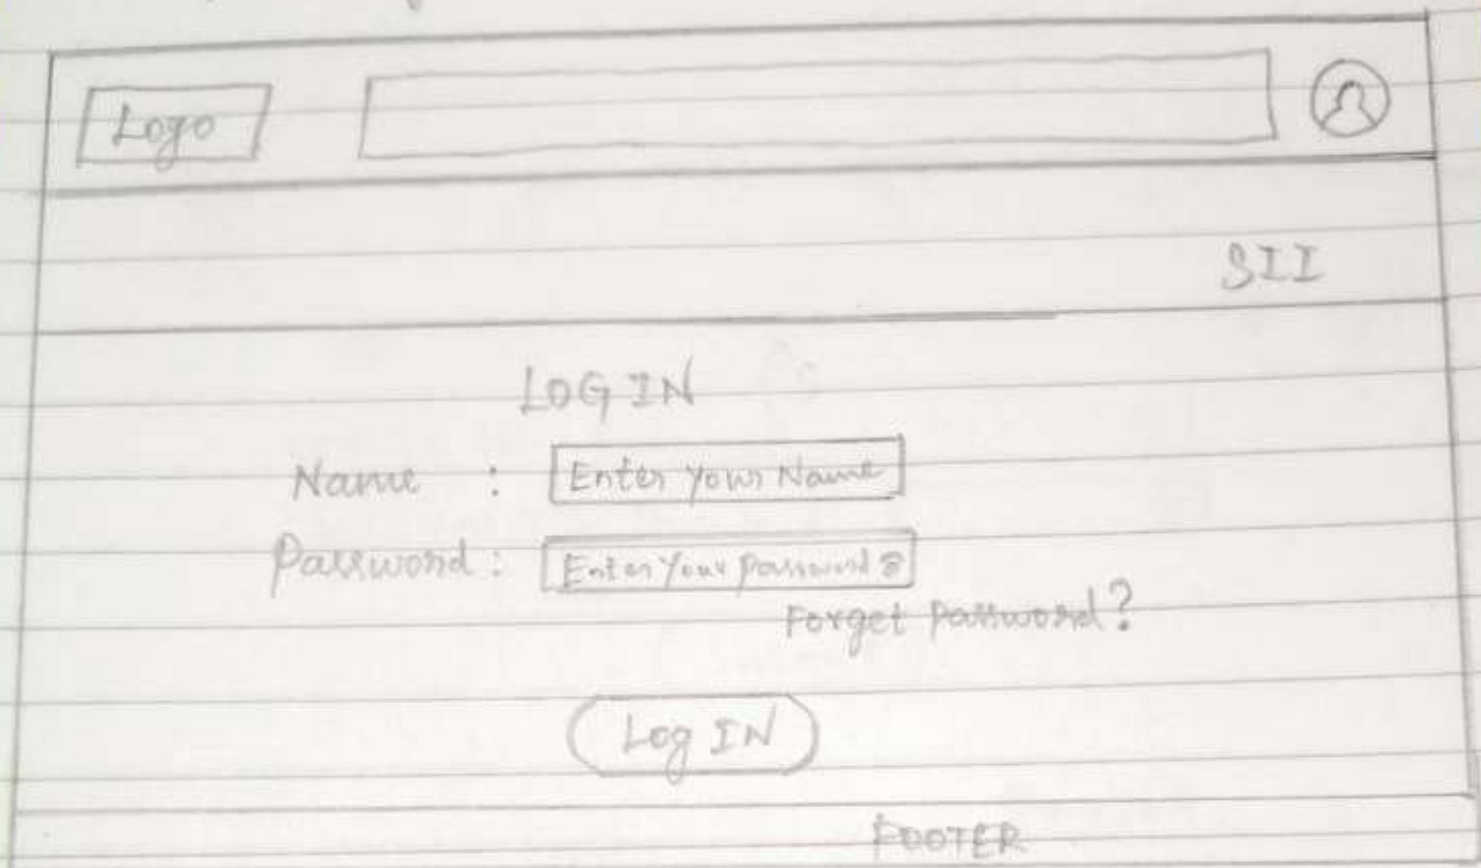 Logo
SII
LOG IN
Name : Enter Your Name
Password : Enter Your Password
Forget Password?
Log IN
FOOTER